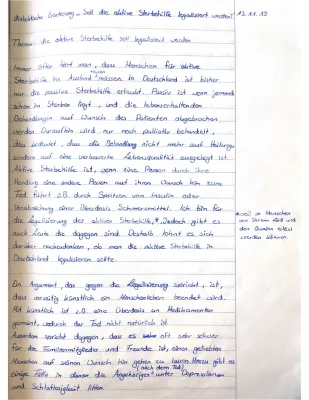 dialektische Erörterung - Soll die aktive Sterbehilfe legalisiert werden? 13.11.19
Thema: die aktive Sterbehilfe soll legalisiert werden
Immer öfter hört man, dass Menschen für aktive
Sterbehilfe ins Ausland reisen müssen. In Deutschland ist bisher
nur die passive Sterbehilfe erlaubt. Passiv ist wenn jemand
schon im Sterben liegt, und die lebenserhaltenden
Behandlungen auf Wunsch des Patienten abgebrochen
werden. Daraufhin wird nur noch palliativ behandelt,
dies bedeutet, dass die Behandlung nicht mehr auf Heilung,
sondern auf eine verbesserte Lebensqualität ausgelegt ist.
Aktive Sterbehilfe ist, wenn eine Person durch ihre
Handlung eine andere Person auf ihren Wunsch hin zum
Tod führt z.B. durch Spritzen von Insulin oder
Verabreichung einer Überdosis Schmerzmittel. Ich bin für
die Legalisierung der aktiven Sterbehilfe,* Jedoch gibt es
auch Leute die dagegen sind. Deshalb lohnt es sich
darüber nachzudenken, ob man die aktive Sterbehilfe in
Deutschland legalisieren sollte.
*weil so Menschen
von ihrem Leid und
den Qualen erlöst
werden können.
Ein Argument, das gegen die Legalisierung spricht, ist,
dass vorzeitig künstlich ein Menschenleben beendet wird.
Mit künstlich ist z.B. eine Überdosis an Medikamenten
gemeint, wodurch der Tod nicht natürlich ist.
Außerdem spricht dagegen, dass es oft sehr schwer
für die Familienmitglieder und Freunde ist, einen geliebten
Menschen auf seinen Wunsch hin gehen zu lassen. Hierzu gibt es
einige Fälle in denen die Angehörigen (nach dem Tod) unter Depressionen
und Schlaflosigkeit litten.